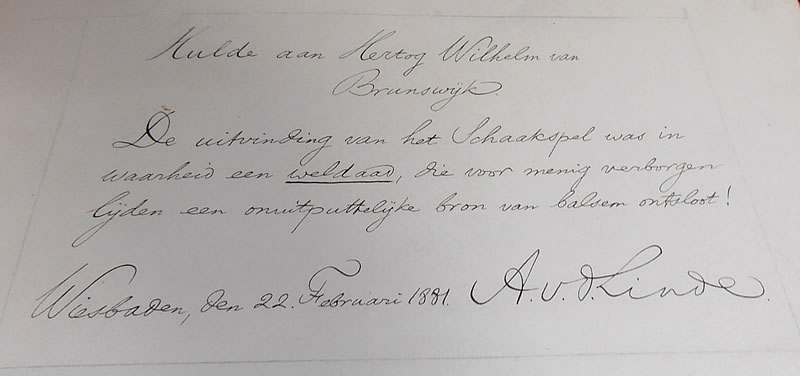 Hulde aan Hertog Wilhelm van
Brunswijk.
De uitvinding van het Schaakspel was in
waarheid een weldaad, die voor menig verborgen
lijden een onuitputtelijke bron van balsem ontsloot!
Wiesbaden, den 22. Februari 1881. A. v. d. Linde.